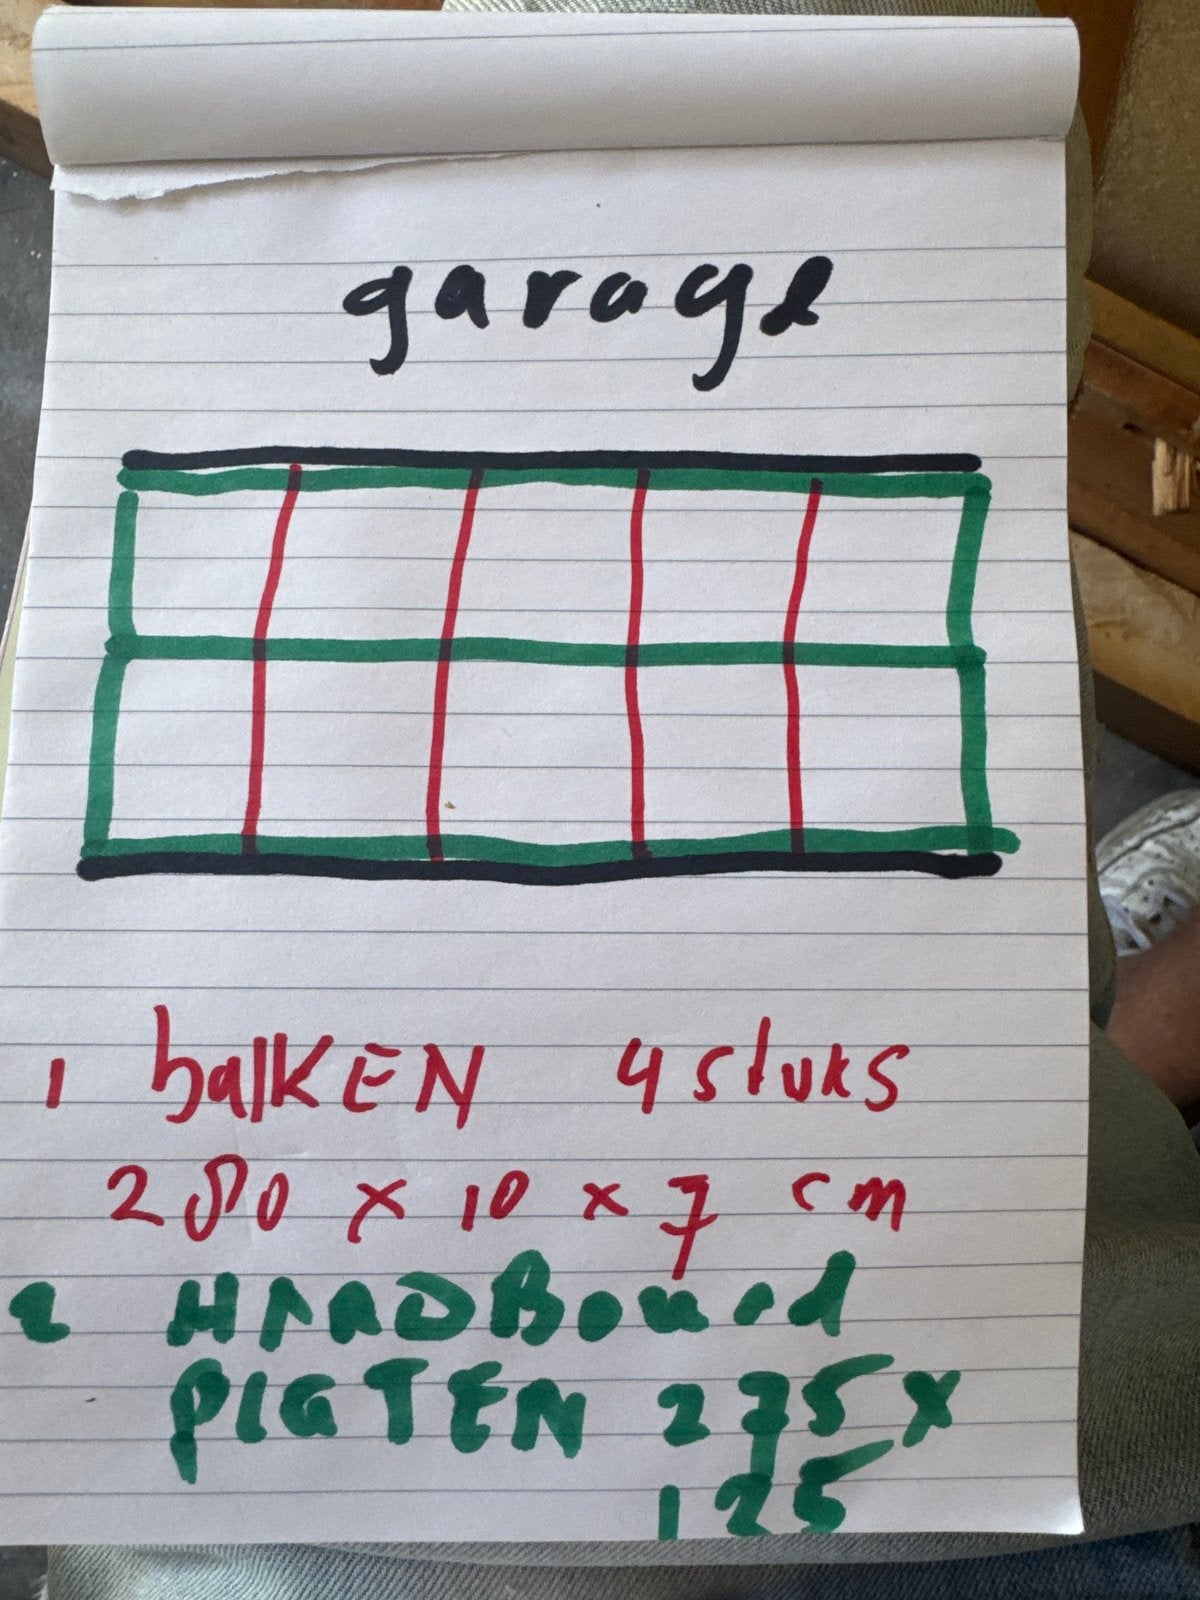 garage
1 balKEN 4 stuks
280 x 10 x 7 cm
2 HARDBoard
PlaTEN 275 x
125